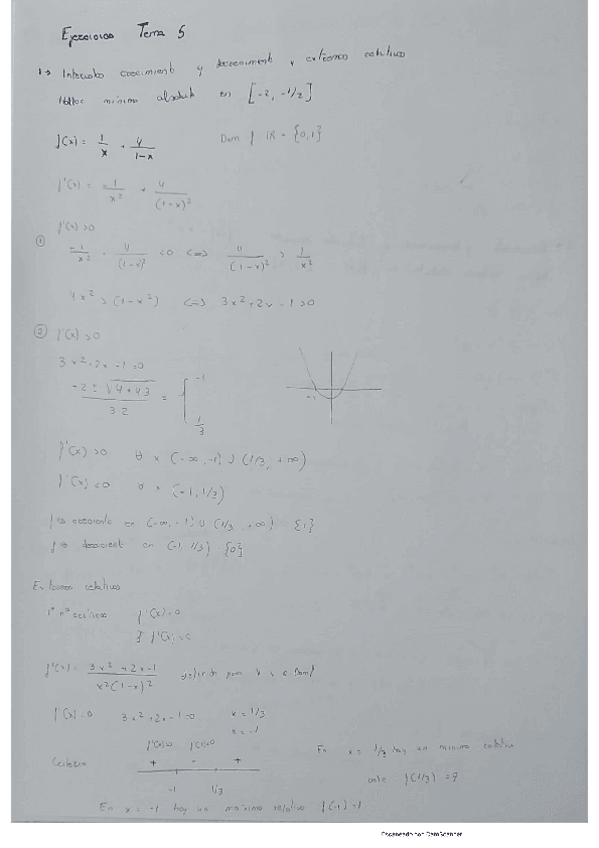 Ejercicios Tema 5
1→ Intervalos crecimiento y decrecimiento y extremos relativos
Hallar mínimo absoluto en [-2, -1/2]
f(x) = 1/x + 4/(1-x) Dom f ℝ - {0,1}
f'(x) = -1/x² + 4/(1-x)²
f'(x) >0
① -1/x² + 4/(1-x)² <0 <=> 4/(1-x)² > 1/x²
4x² > (1-x²) <=> 3x²+2x-1>0
② f'(x) >0
3x²+2x-1=0
-2 ± √4+4·3 / 3·2 = { -1
1/3
-1
f'(x) >0 ∀ x (-∞, -1) ∪ (1/3, +∞)
f'(x) <0 ∀ x (-1, 1/3)
f es creciente en (-∞, -1) ∪ (1/3, +∞) {1}
f es decreciente en (-1, 1/3) {0}
Extremos relativos
f'(x)=0
f'(x) = 3x²+2x-1 / x²(1-x)²
f'(x)=0 3x²+2x-1=0 x = 1/3
x = -1
f'(x)>0 f'(x)<0
Criterio + - +
-1 1/3
En x = 1/3 hay un mínimo relativo
f(1/3) = 9
En x = -1 hay un máximo relativo f(-1)=1
Escaneado con CamScanner